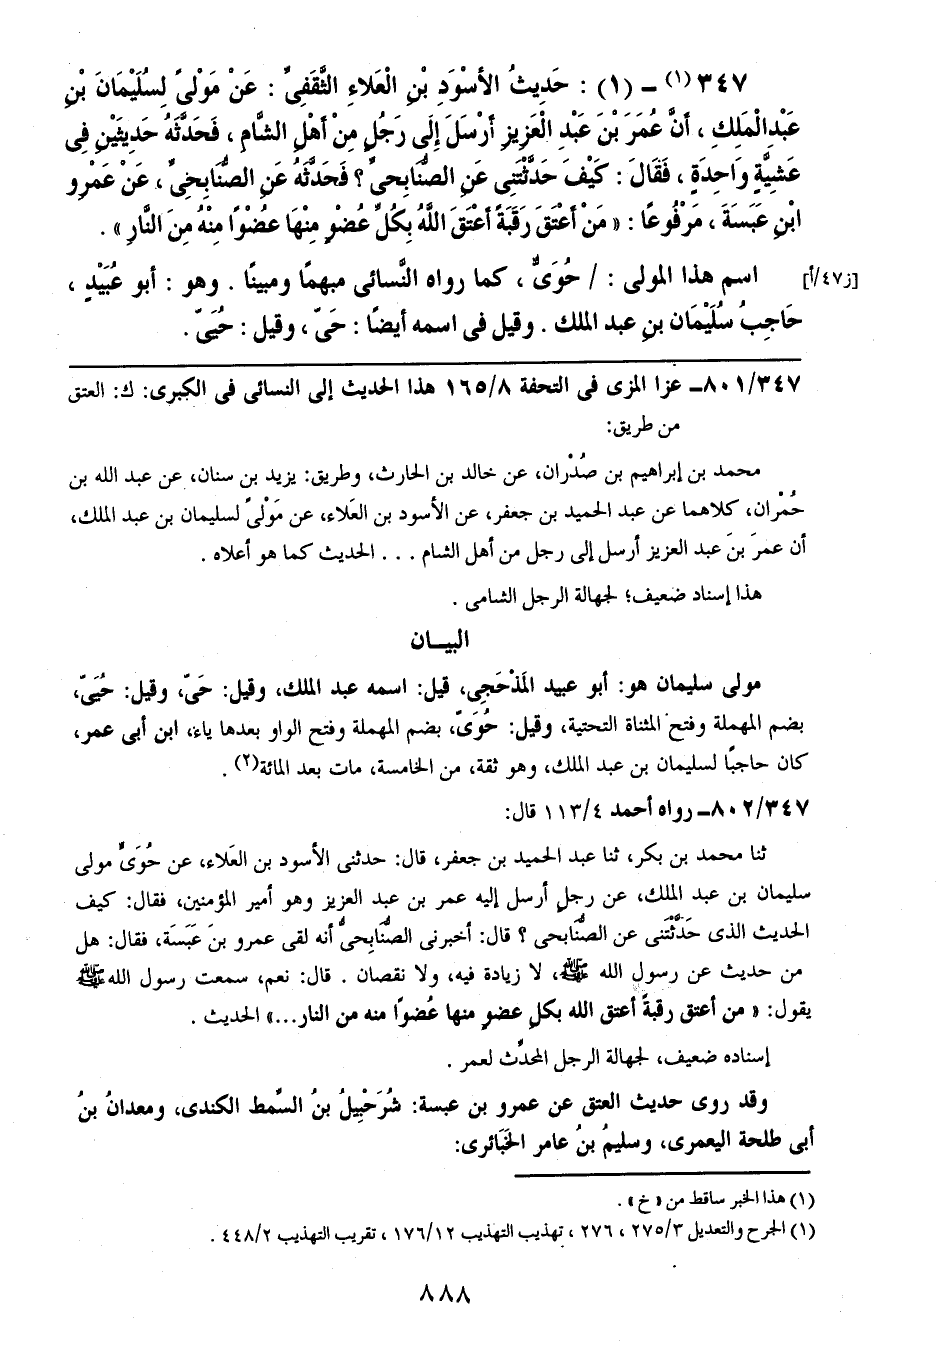 ٣٤٧(١) – (١) : حَدِيثُ الأسْوَدِ بْنِ الْعَلاءِ الثَّقَفِىِّ : عَنْ مَوْلىً لِسُلَيْمَانَ بْنِ
عَبْدِالْمَلِكِ ، أنَّ عُمَرَ بْنَ عَبْدِ الْعَزِيزِ أرْسَلَ إلَى رَجُلٍ مِنْ أهْلِ الشَّامِ ، فَحَدَّثَهُ حَدِيثَيْنِ فِى
عَشِيَّةٍ وَاحِدَةٍ ، فَقَالَ : كَيْفَ حَدَّثْتَنِى عَنِ الصُّنَابِحى ؟ فَحَدَّثَهُ عَنِ الصُّنَابِحِىِّ ، عَنْ عَمْرِو
ابْنِ عَبَسَةَ ، مَرْفُوعًا : « مَنْ أعْتَقَ رَقَبَةً أعْتَقَ اللَّهُ بِكُلِّ عُضْوٍ مِنْهَا عُضْوًا مِنْهُ مِنَ النَّارِ » .
[ز٤٧/أ] اسم هذا المولى : / حُوَىٌّ ، كما رواه النَّسائى مبهمًا ومبينًا . وهو : أبو عُبَيْدٍ ،
حَاجِبُ سُلَيْمَان بنِ عبد الملك . وقيل فى اسمه أيضًا : حَىّ ، وقيل : حُيَىّ .
٨٠١/٣٤٧ـ عزا المزى فى التحفة ١٦٥/٨ هذا الحديث إلى النسائى فى الكبرى: ك: العتق
من طريق:
محمد بن إبراهيم بن صُدْران، عن خالد بن الحارث، وطريق: يزيد بن سنان، عن عبد الله بن
حُمْران، كلاهما عن عبد الحميد بن جعفر، عن الأسود بن العَلاء، عن مَوْلىً لسليمان بن عبد الملك،
أن عمرَ بنَ عبد العزيز أرسل إلى رجل من أهل الشام . . . الحديث كما هو أعلاه .
هذا إسناد ضعيف؛ لجهالة الرجل الشامى .
البيـــان
مولى سليمان هو: أبو عبيد المَذْحَجِى، قيل: اسمه عبد الملك، وقيل: حَىّ، وقيل: حُيَىّ،
بضم المهملة وفتح المثناة التحتية، وقيل: حُوَىّ، بضم المهملة وفتح الواو بعدها ياء، ابن أبى عمر،
كان حاجبًا لسليمان بن عبد الملك، وهو ثقة، من الخامسة، مات بعد المائة(٢) .
٨٠٢/٣٤٧ـ رواه أحمد ١١٣/٤ قال:
ثنا محمد بن بكر، ثنا عبد الحميد بن جعفر، قال: حدثنى الأسود بن العَلاء، عن حُوَىٍّ مولى
سليمان بن عبد الملك، عن رجلٍ أرسل إليه عمر بن عبد العزيز وهو أمير المؤمنين، فقال: كيف
الحديث الذى حَدَّثْتَنى عن الصُّنَابحى ؟ قال: أخبرنى الصُّنَابحىُّ أنه لقى عمرو بنَ عَبَسَة، فقال: هل
من حديث عن رسول الله ﷺ، لا زيادة فيه، ولا نقصان . قال: نعم، سمعت رسول الله ﷺ
يقول: « من أعتق رقبةً أعتق الله بكلِ عضوٍ منها عُضوًا منه من النار...» الحديث .
إسناده ضعيف، لجهالة الرجل المحدِّث لعمر .
وقد روى حديث العتق عن عمرو بن عبسة: شُرَحْبِيلُ بنُ السِّمط الكندى، ومعدانُ بنُ
أبى طلحة اليعمرى، وسليمُ بنُ عامر الخَبَائرى:
(١) هذا الخبر ساقط من « خ » .
(١) الجرح والتعديل ٢٧٥/٣ ، ٢٧٦ ، تهذيب التهذيب ١٧٦/١٢ ، تقريب التهذيب ٤٤٨/٢ .
٨٨٨